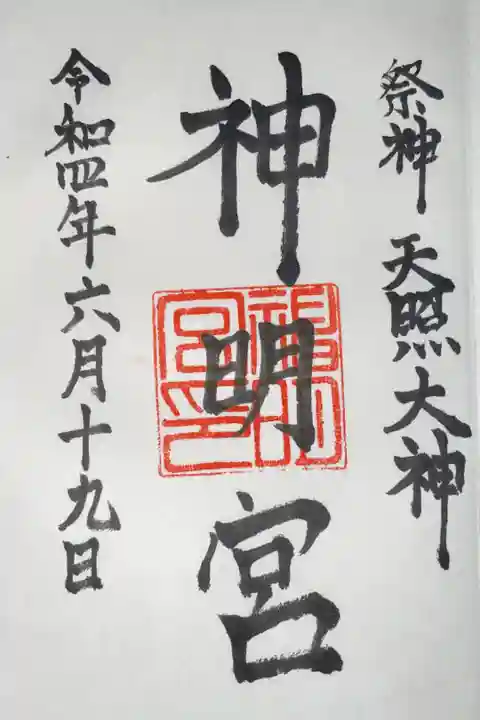 祭神 天照大神
神明宮
令和四年六月十九日
神明宮印